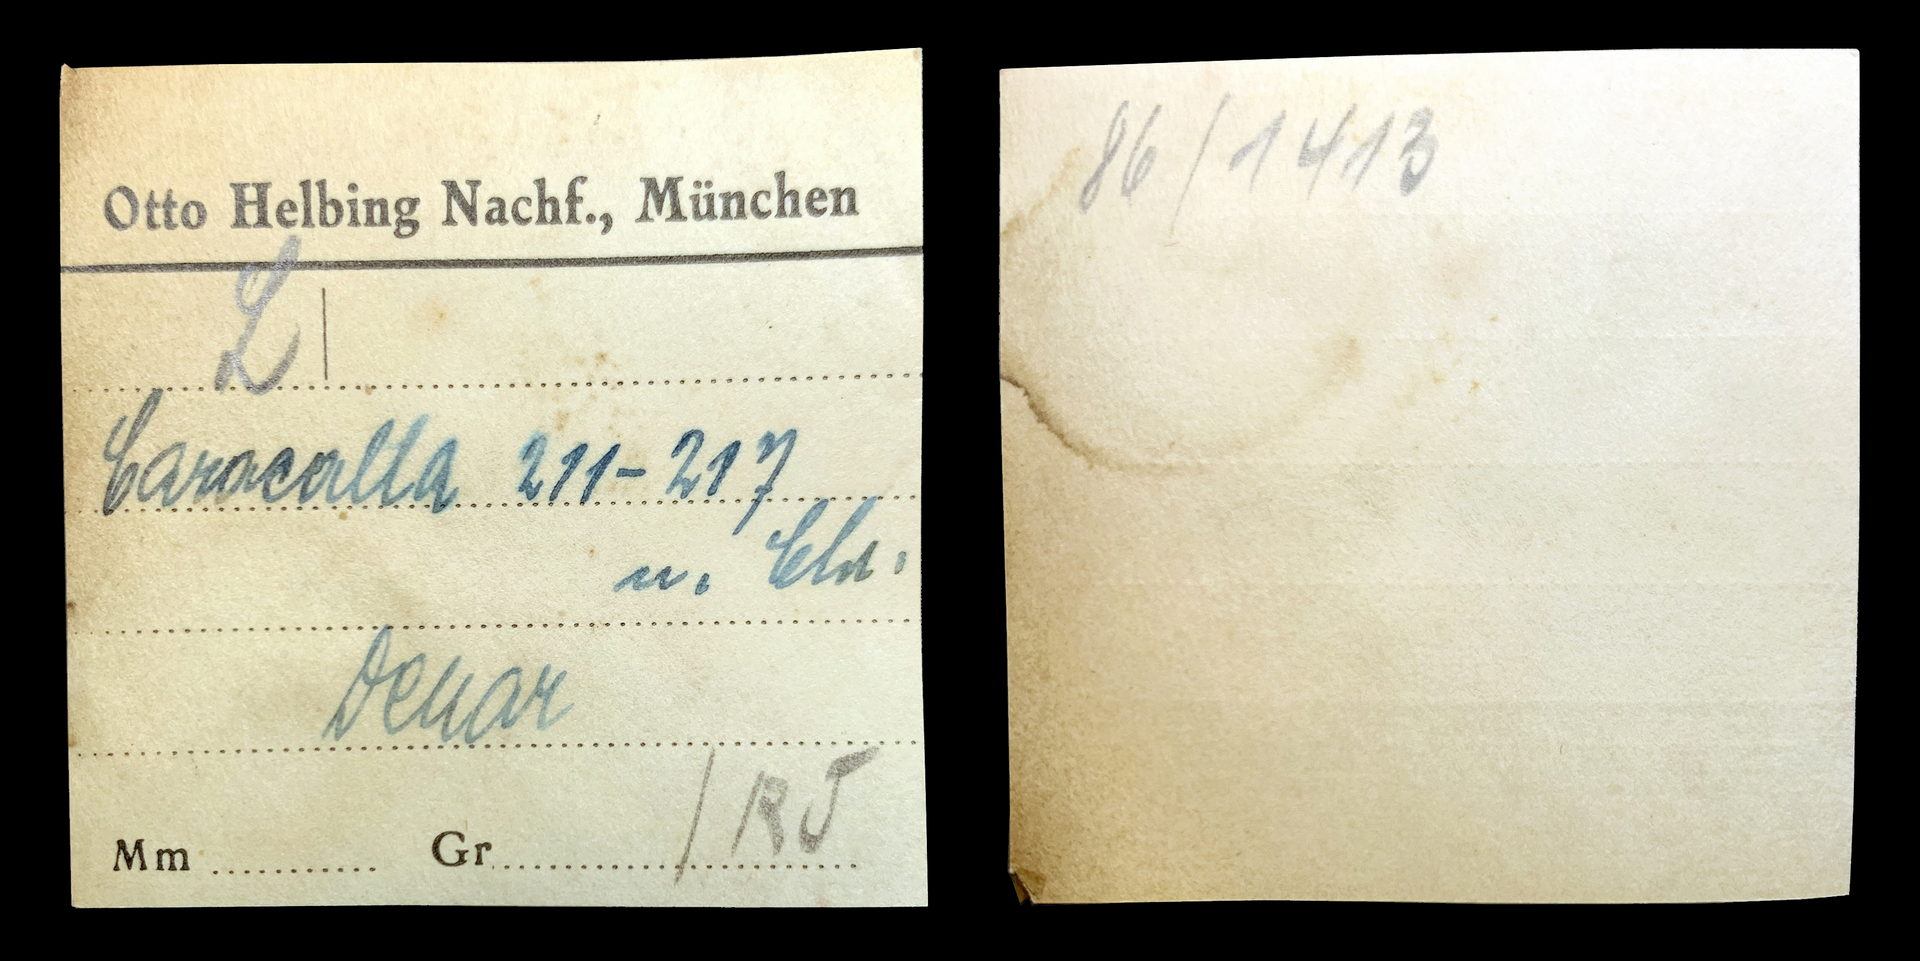 Otto Helbing Nachf., München
L
Caracalla 211-217
u. Chr.
Denar
Mm Gr /
86/1413